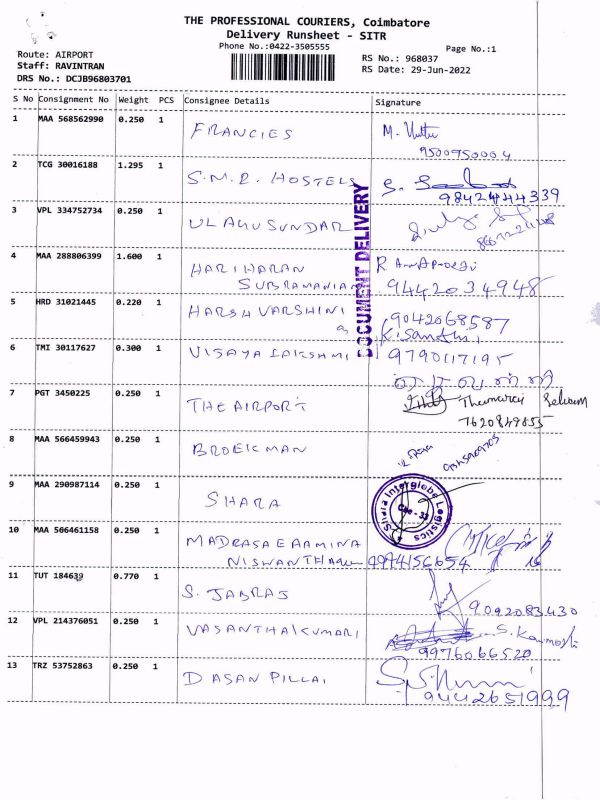 THE PROFESSIONAL COURIERS, Coimbatore
Delivery Runsheet - SITR
Phone No.:0422-3505555
Page No.:1
Route: AIRPORT
Staff: RAVINTRAN
DRS No.: DCJB96803701
RS No.: 968037
RS Date: 29-Jun-2022
S No Consignment No Weight PCS Consignee Details Signature
1 MAA 568562990 0.250 1 FRANCIES M.
9500950004
2 TCG 30016188 1.295 1 S.M.R. HOSTELS
9842444339
3 VPL 334752734 0.250 1 ULAGUSUNDAR
4 MAA 288806399 1.600 1 HARIHARAN R
SUBRAMANIAN 9442034948
5 HRD 31021445 0.220 1 HARSH VARSHINI 9042068587
6 TMI 30117627 0.300 1 VIJAYA LAKSHMI 9790117195
7 PGT 3450225 0.250 1 THE AIRPORT Thamarai Selvam
7620849855
8 MAA 566459943 0.250 1 BROEKMAN
9 MAA 290987114 0.250 1 SHARA
Shara Interglobe Logistics
Cbe - 33
10 MAA 506461158 0.250 1 MADRASAE AAMINA
NISWAN 9994156654
11 TUT 184639 0.770 1 S. JABRAJ
9092083430
12 VPL 214376051 0.250 1 VASANTHAKUMARI S.
9976066520
13 TRZ 53752863 0.250 1 DASAN PILLAI
9442651999
DOCUMENT DELIVERY